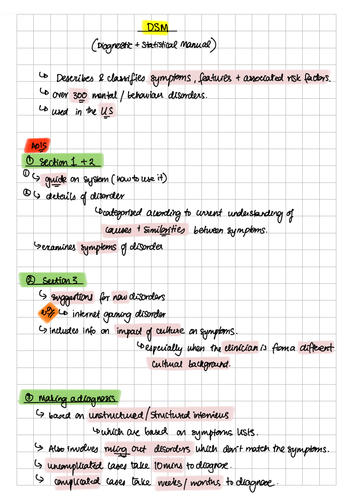 DSM
(Diagnostic + Statistical Manual)
↳ Describes & classifies symptoms, features + associated risk factors.
↳ over 300 mental / behaviour disorders.
↳ used in the US
AO1s
① Section 1 + 2
① ↳ guide on system (how to use it)
② ↳ details of disorder
↳ categorised according to current understanding of
causes + similarities between symptoms.
↳ examines symptoms of disorder
② Section 3
↳ suggestions for new disorders
e.g. ↳ internet gaming disorder
↳ includes info on impact of culture on symptoms.
↳ especially when the clinician is from a different
cultural background.
③ Making a diagnosis
↳ based on unstructured / structured interviews
↳ which are based on symptoms lists.
↳ Also involves ruling out disorders which don't match the symptoms.
↳ uncomplicated cases take 10 mins to diagnose.
↳ complicated cases take weeks / months to diagnose.